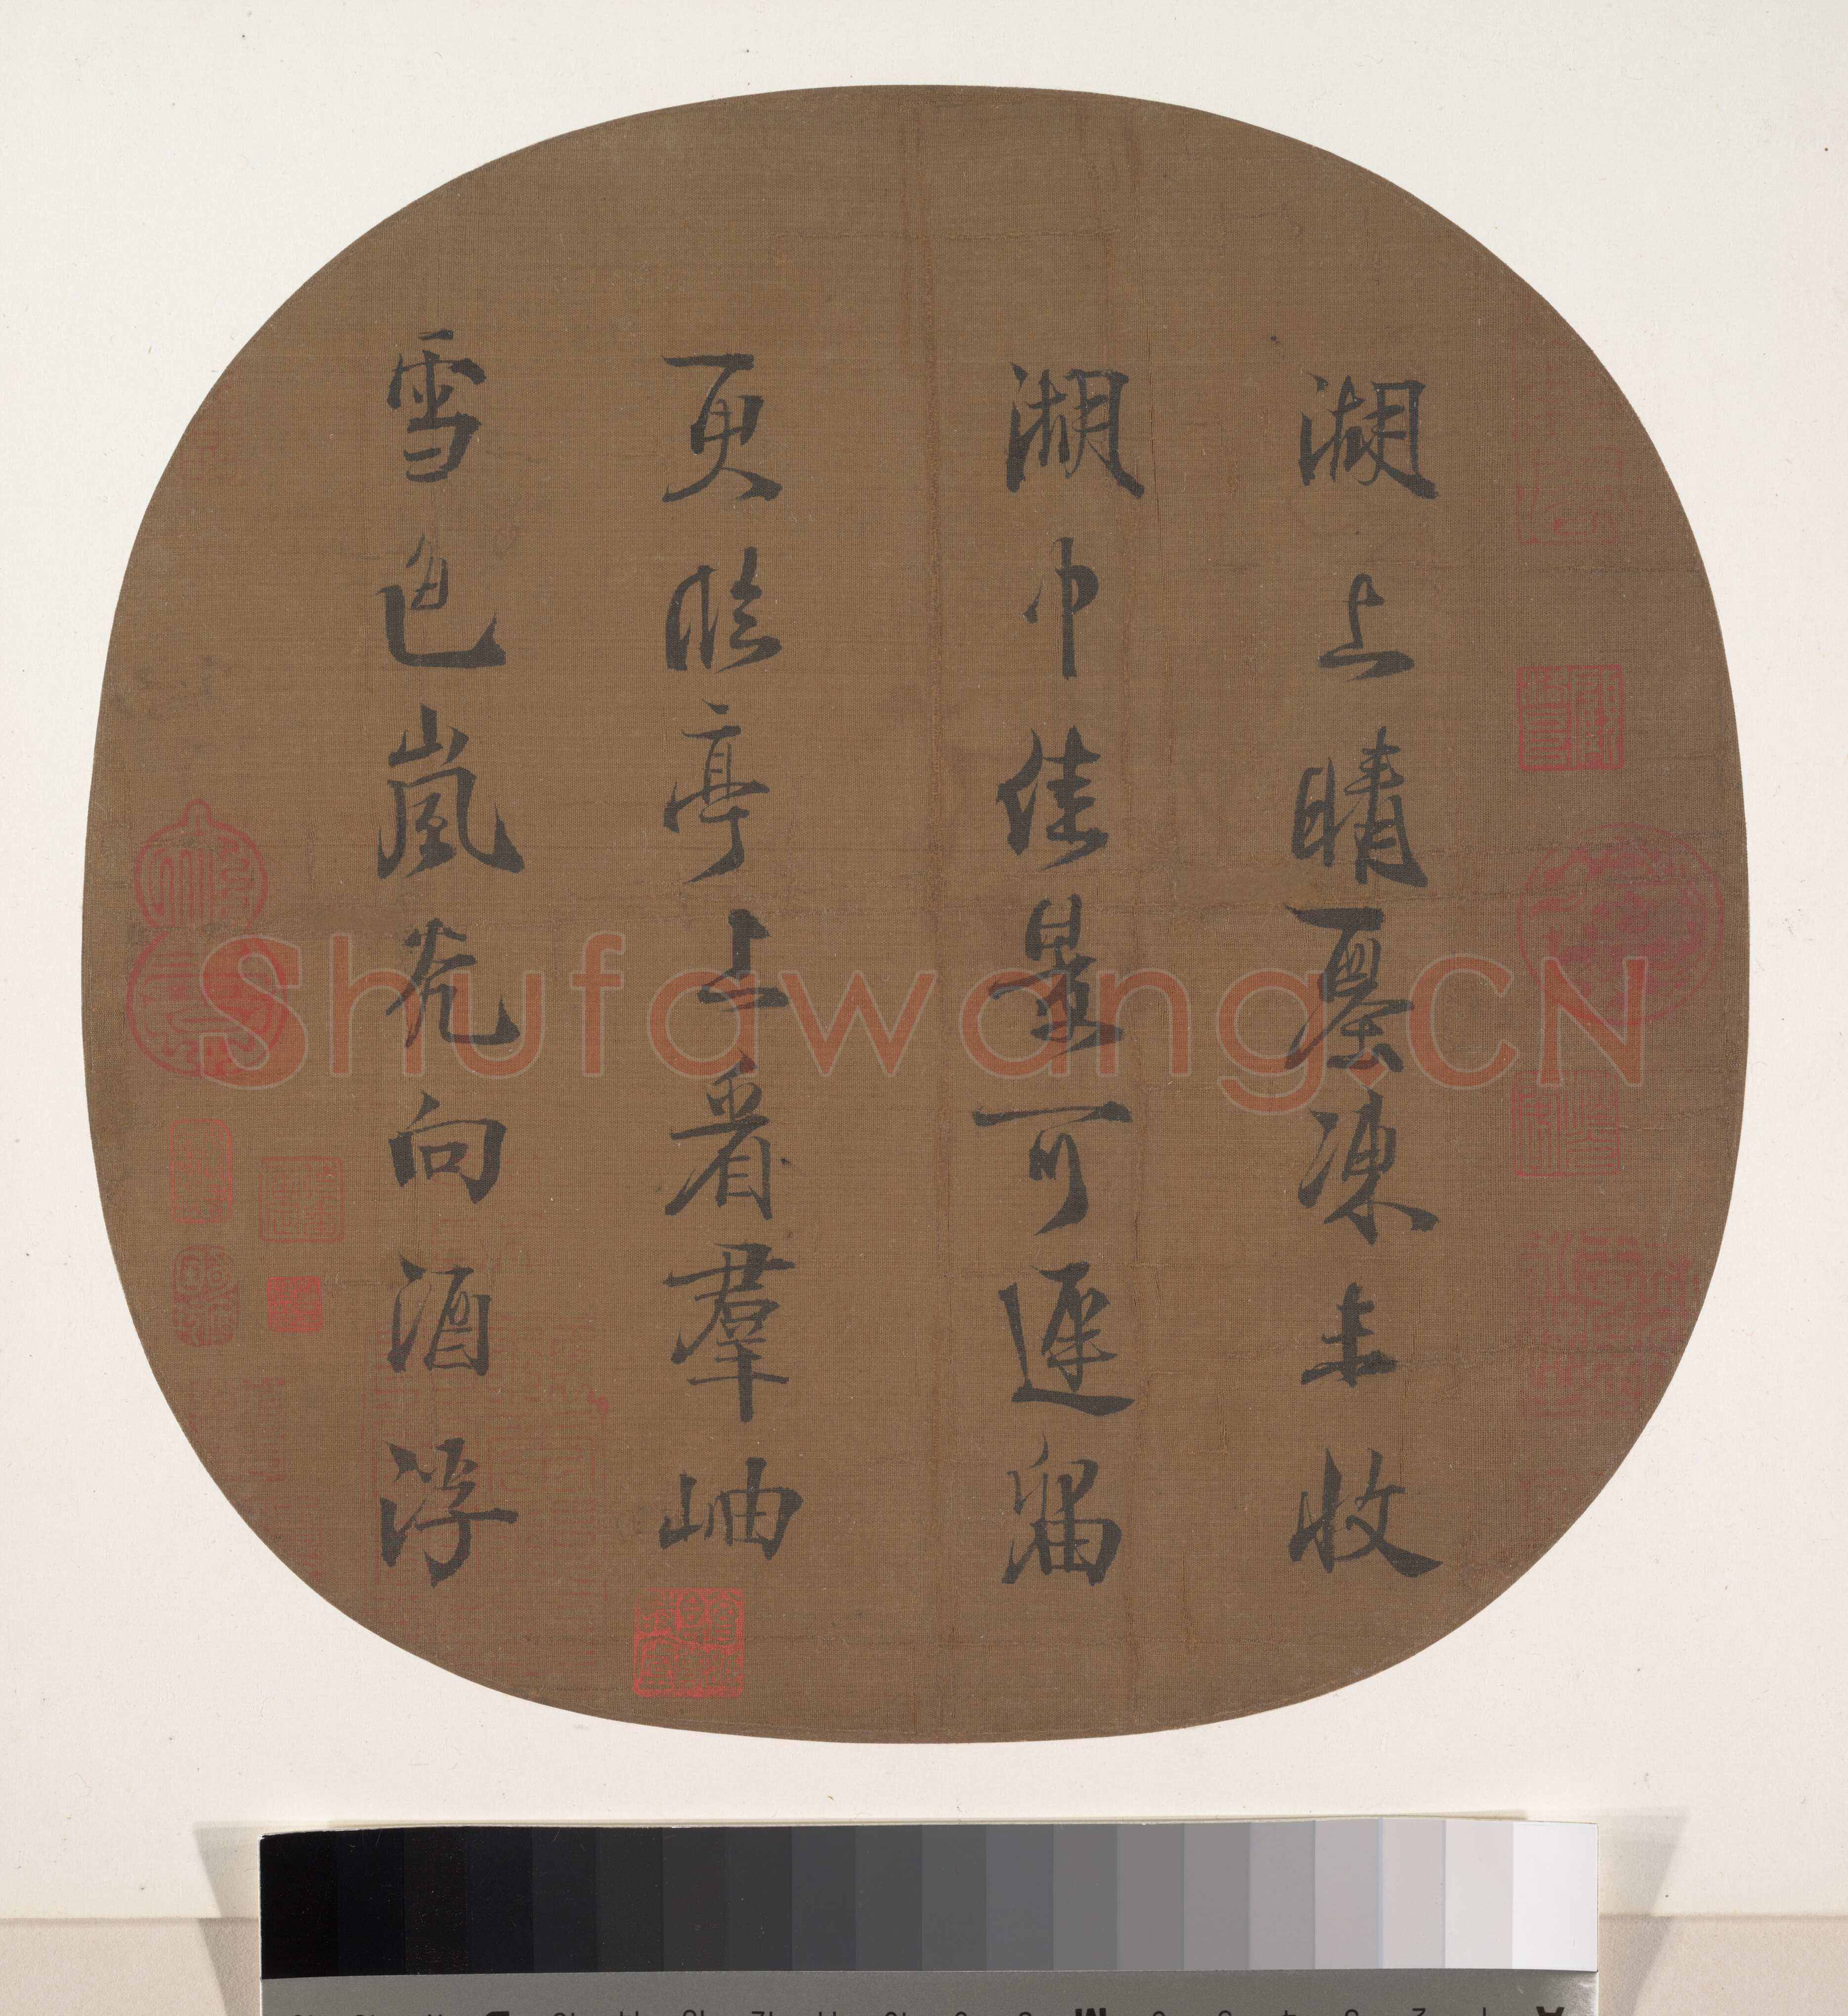 湖上晴凍未收
湖中佳景可遲留
更臨亭上看羣岫
雪色嵐光向酒浮
Shufawang.CN